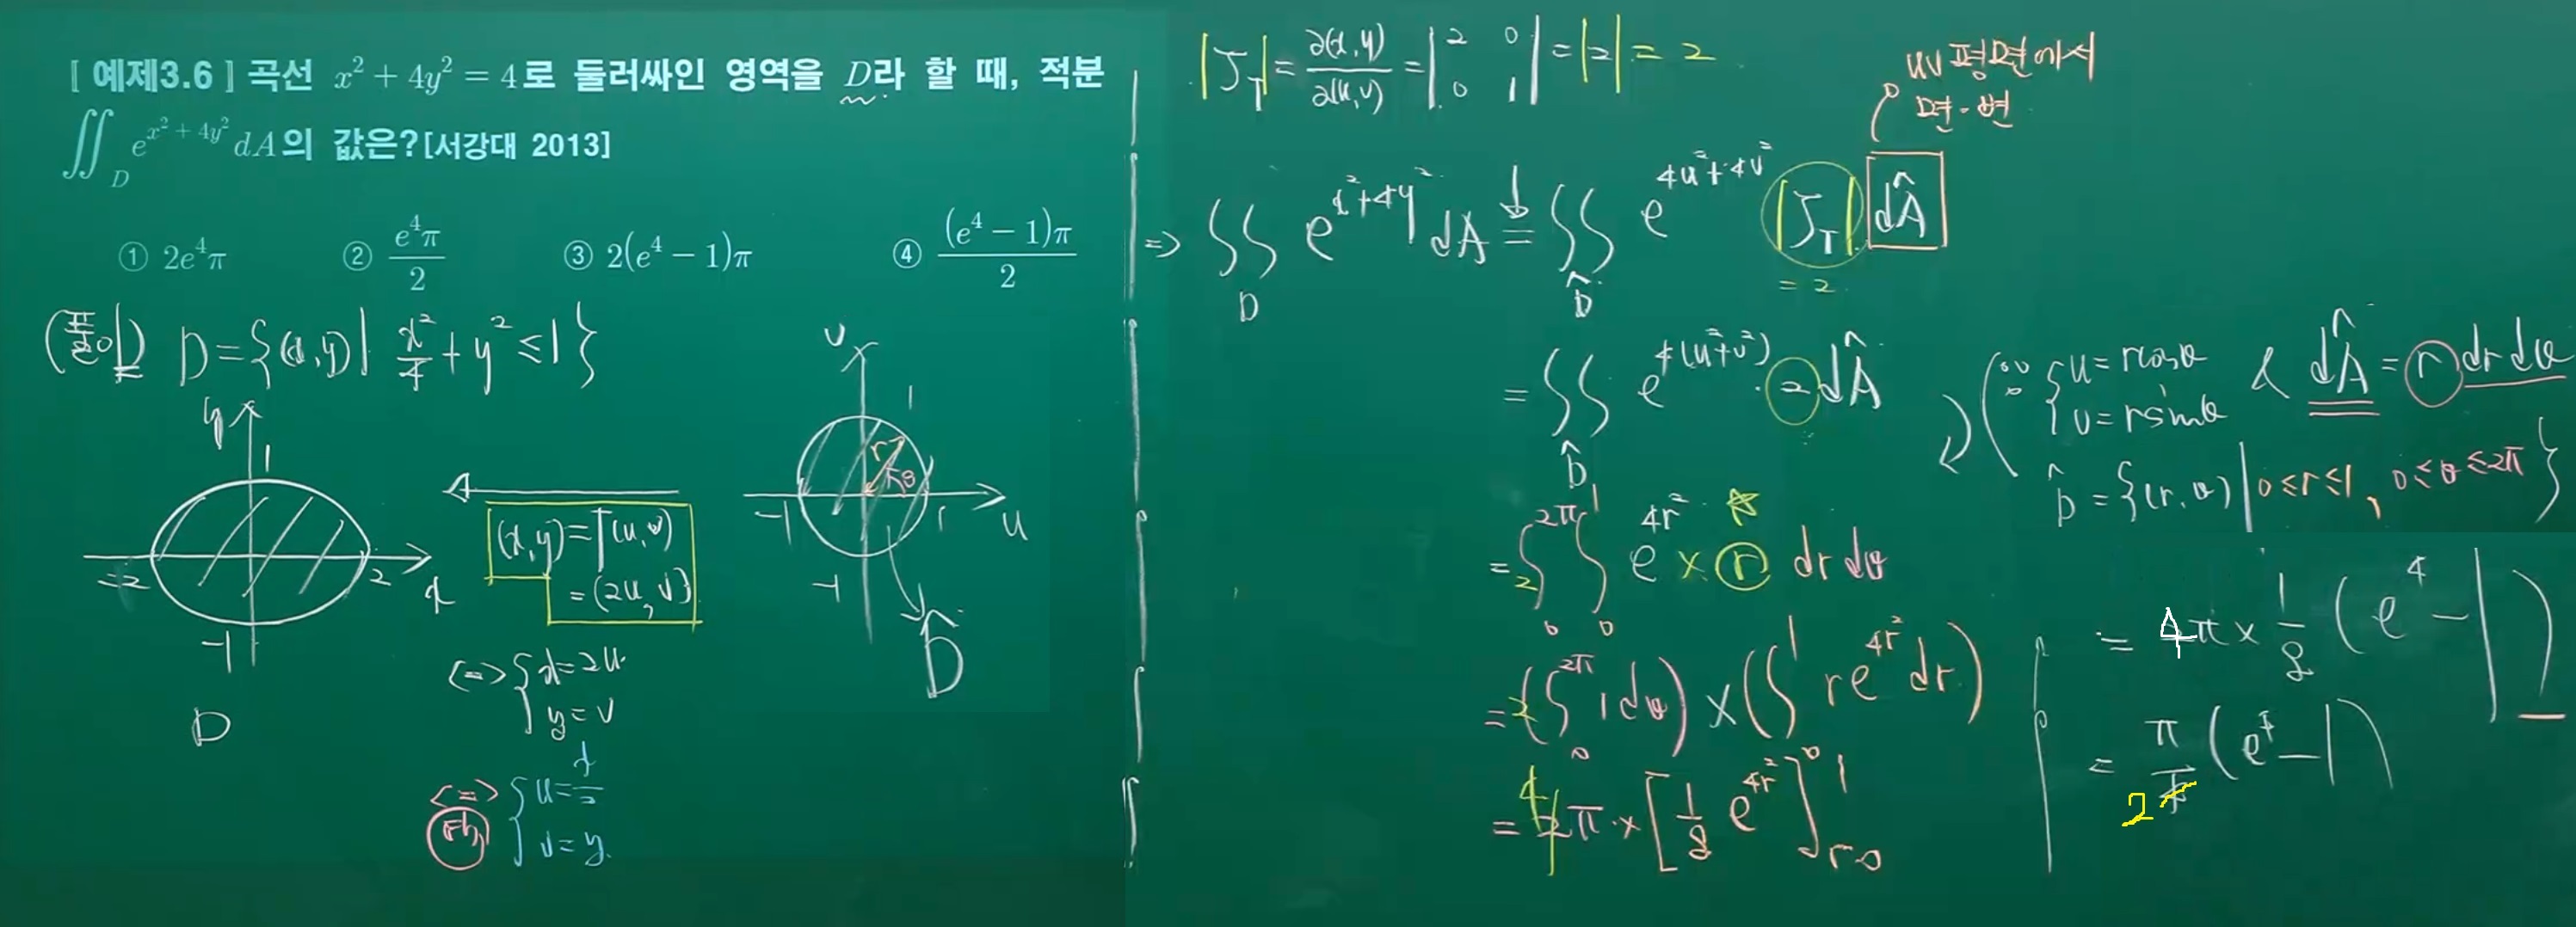 [ 예제3.6 ] 곡선 x² + 4y² = 4로 둘러싸인 영역을 D라 할 때, 적분
∬_D e^{x² + 4y²} dA의 값은? [서강대 2013]
① 2e⁴π ② e⁴π/2 ③ 2(e⁴ − 1)π ④ (e⁴ − 1)π/2
(풀이) D = {(x, y) | x²/4 + y² ≤ 1}
y
1
-2 2 x
-1
D
(x, y) = T(u, v)
= (2u, v)
<=> { x = 2u
y = v
<=> { u = x/2
v = y
v
1
r θ
-1 1 u
-1
D̂
|J_T| = ∂(x, y)/∂(u, v) = |2 0; 0 1| = |2| = 2
uv 평면에서
면·변
=> ∬_D e^{x²+4y²} dA = ∬_D̂ e^{4u²+4v²} |J_T| dÂ
= 2
= ∬_D̂ e^{4(u²+v²)} · 2 dÂ
(∵ { u = r cosθ
v = r sinθ & dÂ = r dr dθ
D̂ = {(r, θ) | 0 ≤ r ≤ 1, 0 ≤ θ ≤ 2π}
= 2 ∫_0^{2π} ∫_0^1 e^{4r²} × r dr dθ
= 2 (∫_0^{2π} 1 dθ) × (∫_0^1 r e^{4r²} dr)
= 4π × [1/8 e^{4r²}]_{r=0}^1
= 4π × 1/8 (e⁴ − 1)
= π/2 (e⁴ − 1)